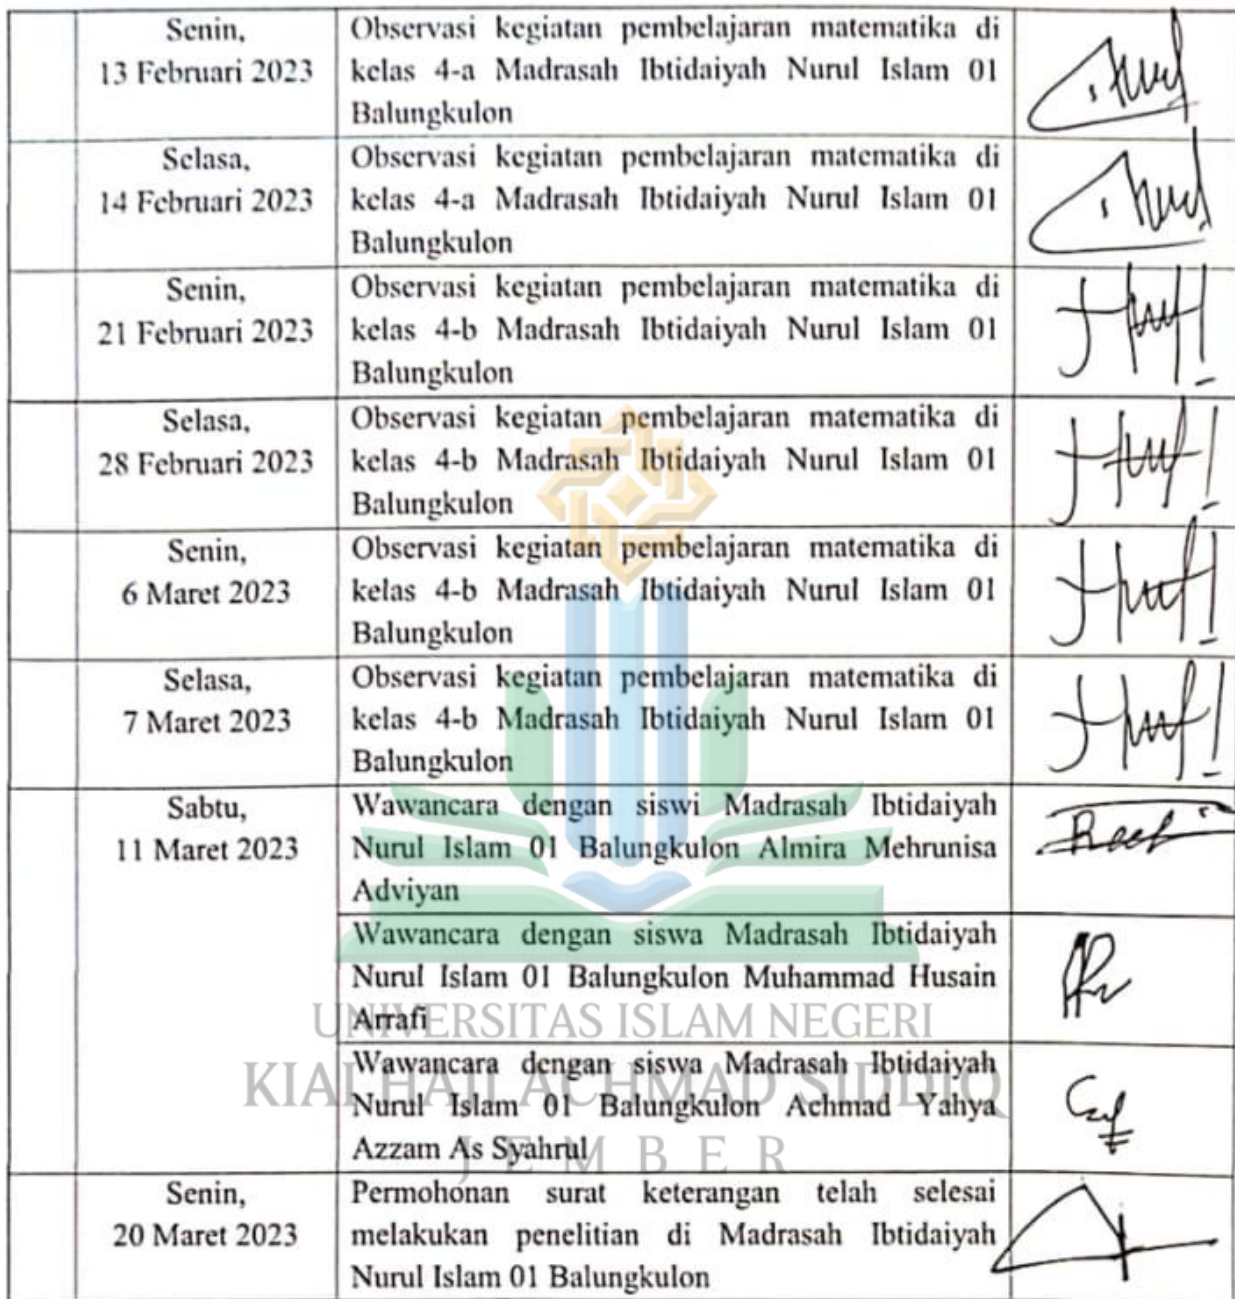 Senin,
13 Februari 2023
Observasi kegiatan pembelajaran matematika di
kelas 4-a Madrasah Ibtidaiyah Nurul Islam 01
Balungkulon
Selasa,
14 Februari 2023
Observasi kegiatan pembelajaran matematika di
kelas 4-a Madrasah Ibtidaiyah Nurul Islam 01
Balungkulon
Senin,
21 Februari 2023
Observasi kegiatan pembelajaran matematika di
kelas 4-b Madrasah Ibtidaiyah Nurul Islam 01
Balungkulon
Selasa,
28 Februari 2023
Observasi kegiatan pembelajaran matematika di
kelas 4-b Madrasah Ibtidaiyah Nurul Islam 01
Balungkulon
Senin,
6 Maret 2023
Observasi kegiatan pembelajaran matematika di
kelas 4-b Madrasah Ibtidaiyah Nurul Islam 01
Balungkulon
Selasa,
7 Maret 2023
Observasi kegiatan pembelajaran matematika di
kelas 4-b Madrasah Ibtidaiyah Nurul Islam 01
Balungkulon
Sabtu,
11 Maret 2023
Wawancara dengan siswi Madrasah Ibtidaiyah
Nurul Islam 01 Balungkulon Almira Mehrunisa
Adviyan
Wawancara dengan siswa Madrasah Ibtidaiyah
Nurul Islam 01 Balungkulon Muhammad Husain
Arrafi
Wawancara dengan siswa Madrasah Ibtidaiyah
Nurul Islam 01 Balungkulon Achmad Yahya
Azzam As Syahrul
Senin,
20 Maret 2023
Permohonan surat keterangan telah selesai
melakukan penelitian di Madrasah Ibtidaiyah
Nurul Islam 01 Balungkulon
UNIVERSITAS ISLAM NEGERI
KIAI HAJI ACHMAD SIDDIQ
JEMBER